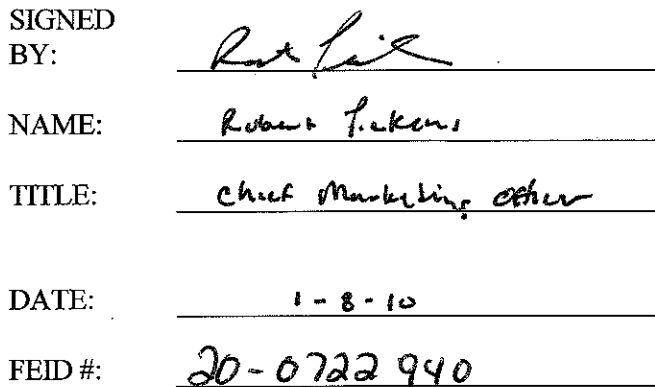 SIGNED
BY:
NAME: Robert Pickens
TITLE: Chief Marketing Officer
DATE: 1-8-10
FEID #: 20-0722940